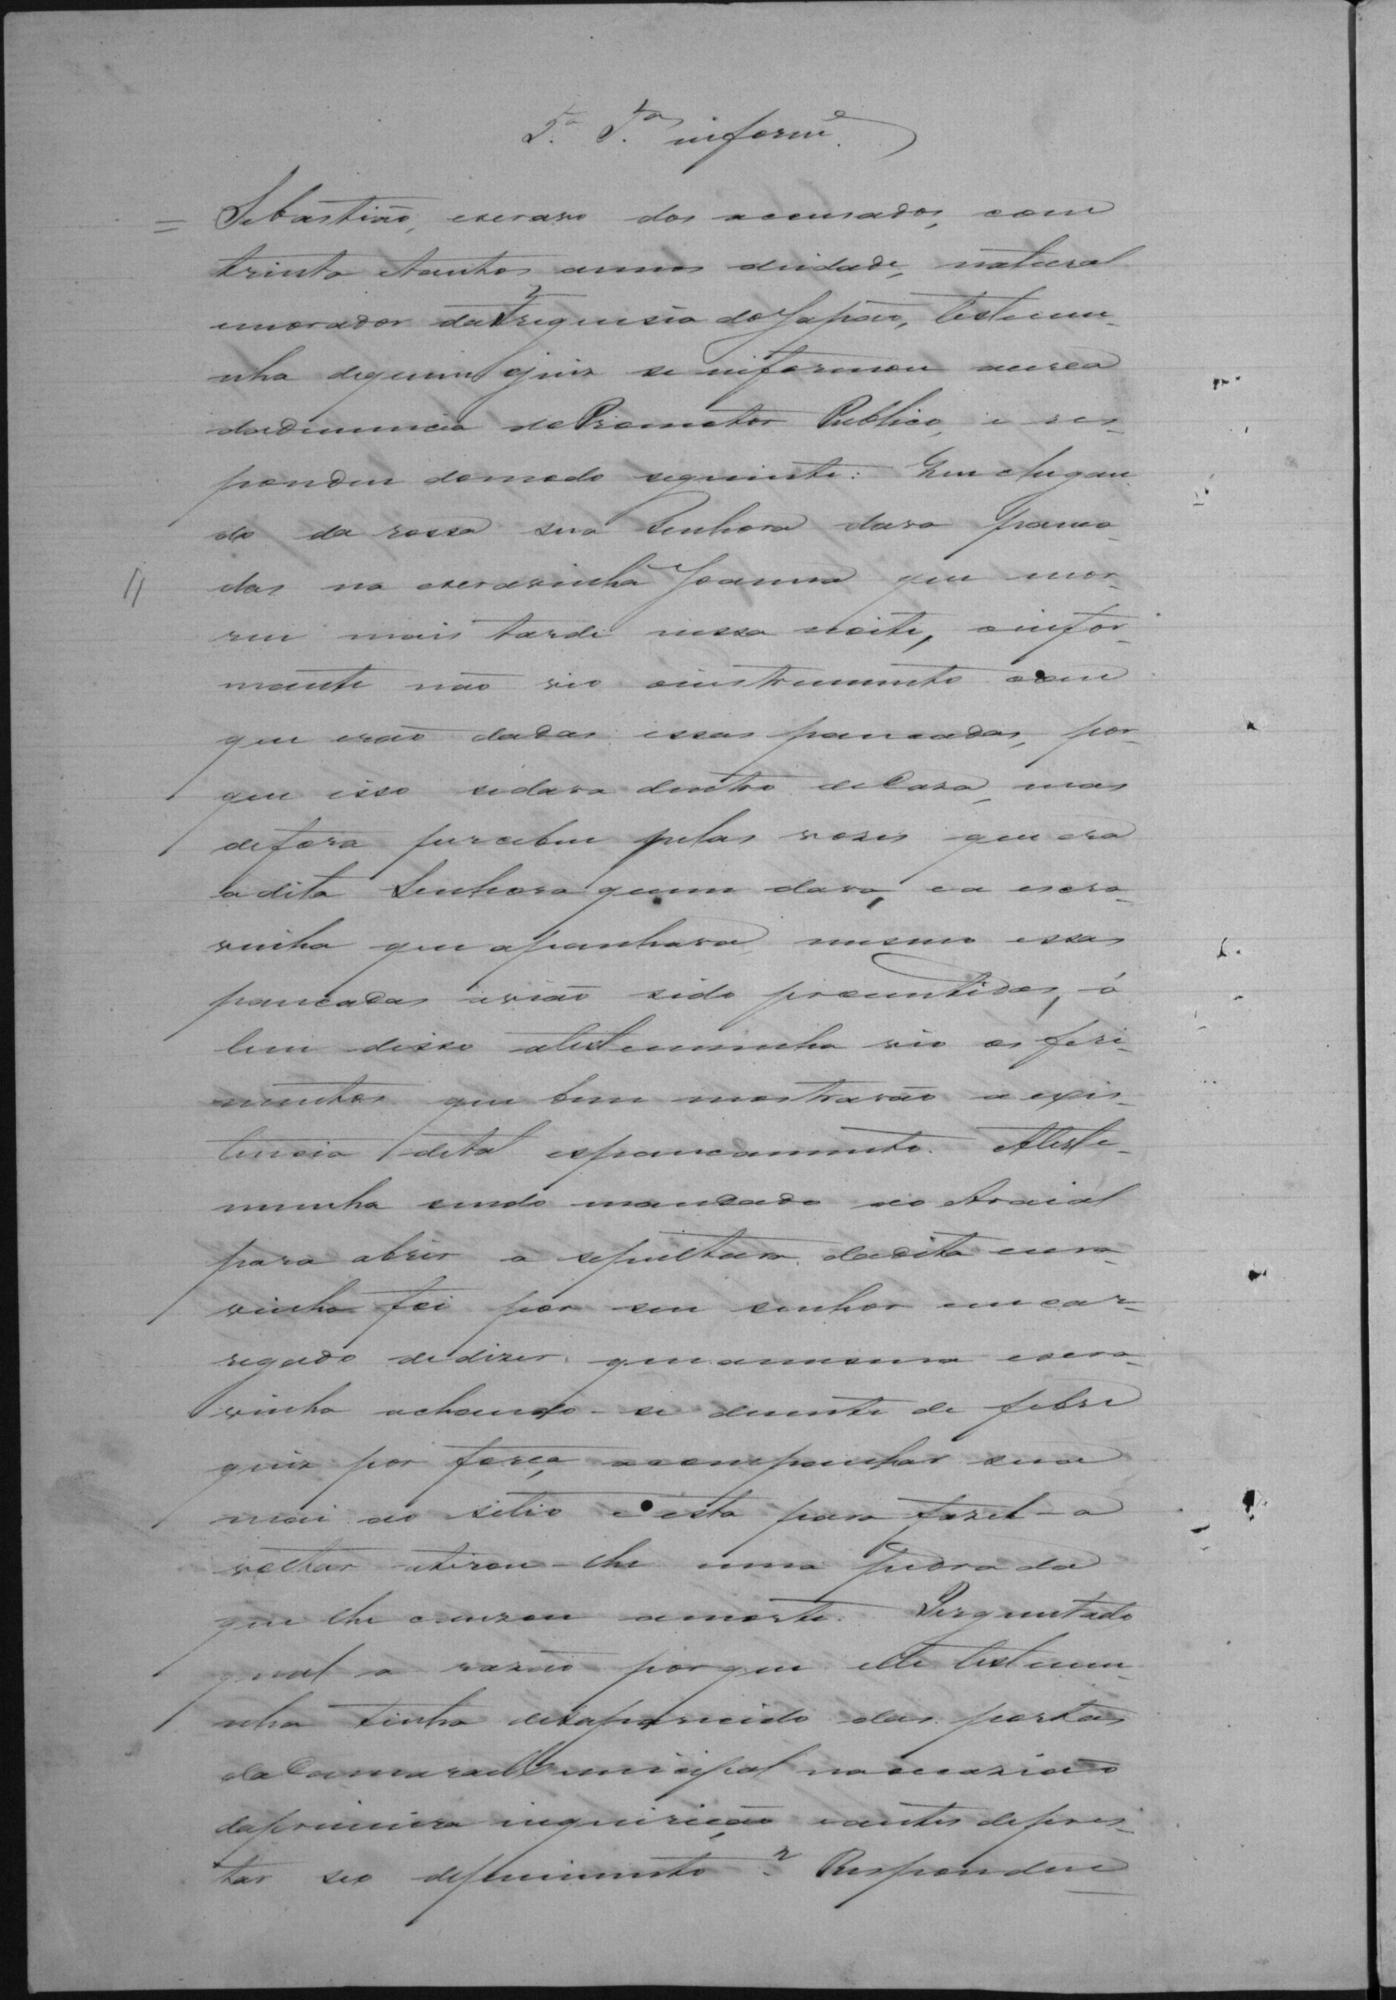 5.ª T.ª inform.e
Sebastião, escravo dos accusados, com
trinta etantos annos deidade, natural
emorador da Freguesia do Japão, testemu-
nha dequem ojuiz se informou acerca
dadenuncia do Promotor Publico, e res-
pondeu domodo seguinte: Em chegan-
do da rossa sua Senhora dava panca-
das na escravinha Joanna que mor-
reu mais tarde nessa noite, oinfor-
mante não vio oinstrumento com
que erão dadas essas pancadas, por-
que isso sedava dentro deCasa, mas
defora percebeu pelas vozes que era
a dita Senhora quem dava, e a escra-
vinha que apanhava, mesmo essas
pancadas avião sido prometidas, á
lem disso atestemunha vio os feri-
mentos que bem mostravão a exis-
tencia detal espancamento. Ateste-
munha sendo mandado ao Araial
para abrir a sepultura dadita escra-
vinha foi por seu senhor encar-
regado dedizer que amesma escra-
vinha achando-se duente de febre
quis por força acompanhar sua
mai ao sitio e esta para fazel-a
voltar atirou-lhe uma pedrada
que lhe causou amorte. Perguntado
qual a razão porque elle testemu-
nha tinha desaparecido das portas
daCamara Municipal na occazião
daprimeira inquirição eantes depres-
tar seo depoimento? Respondeu